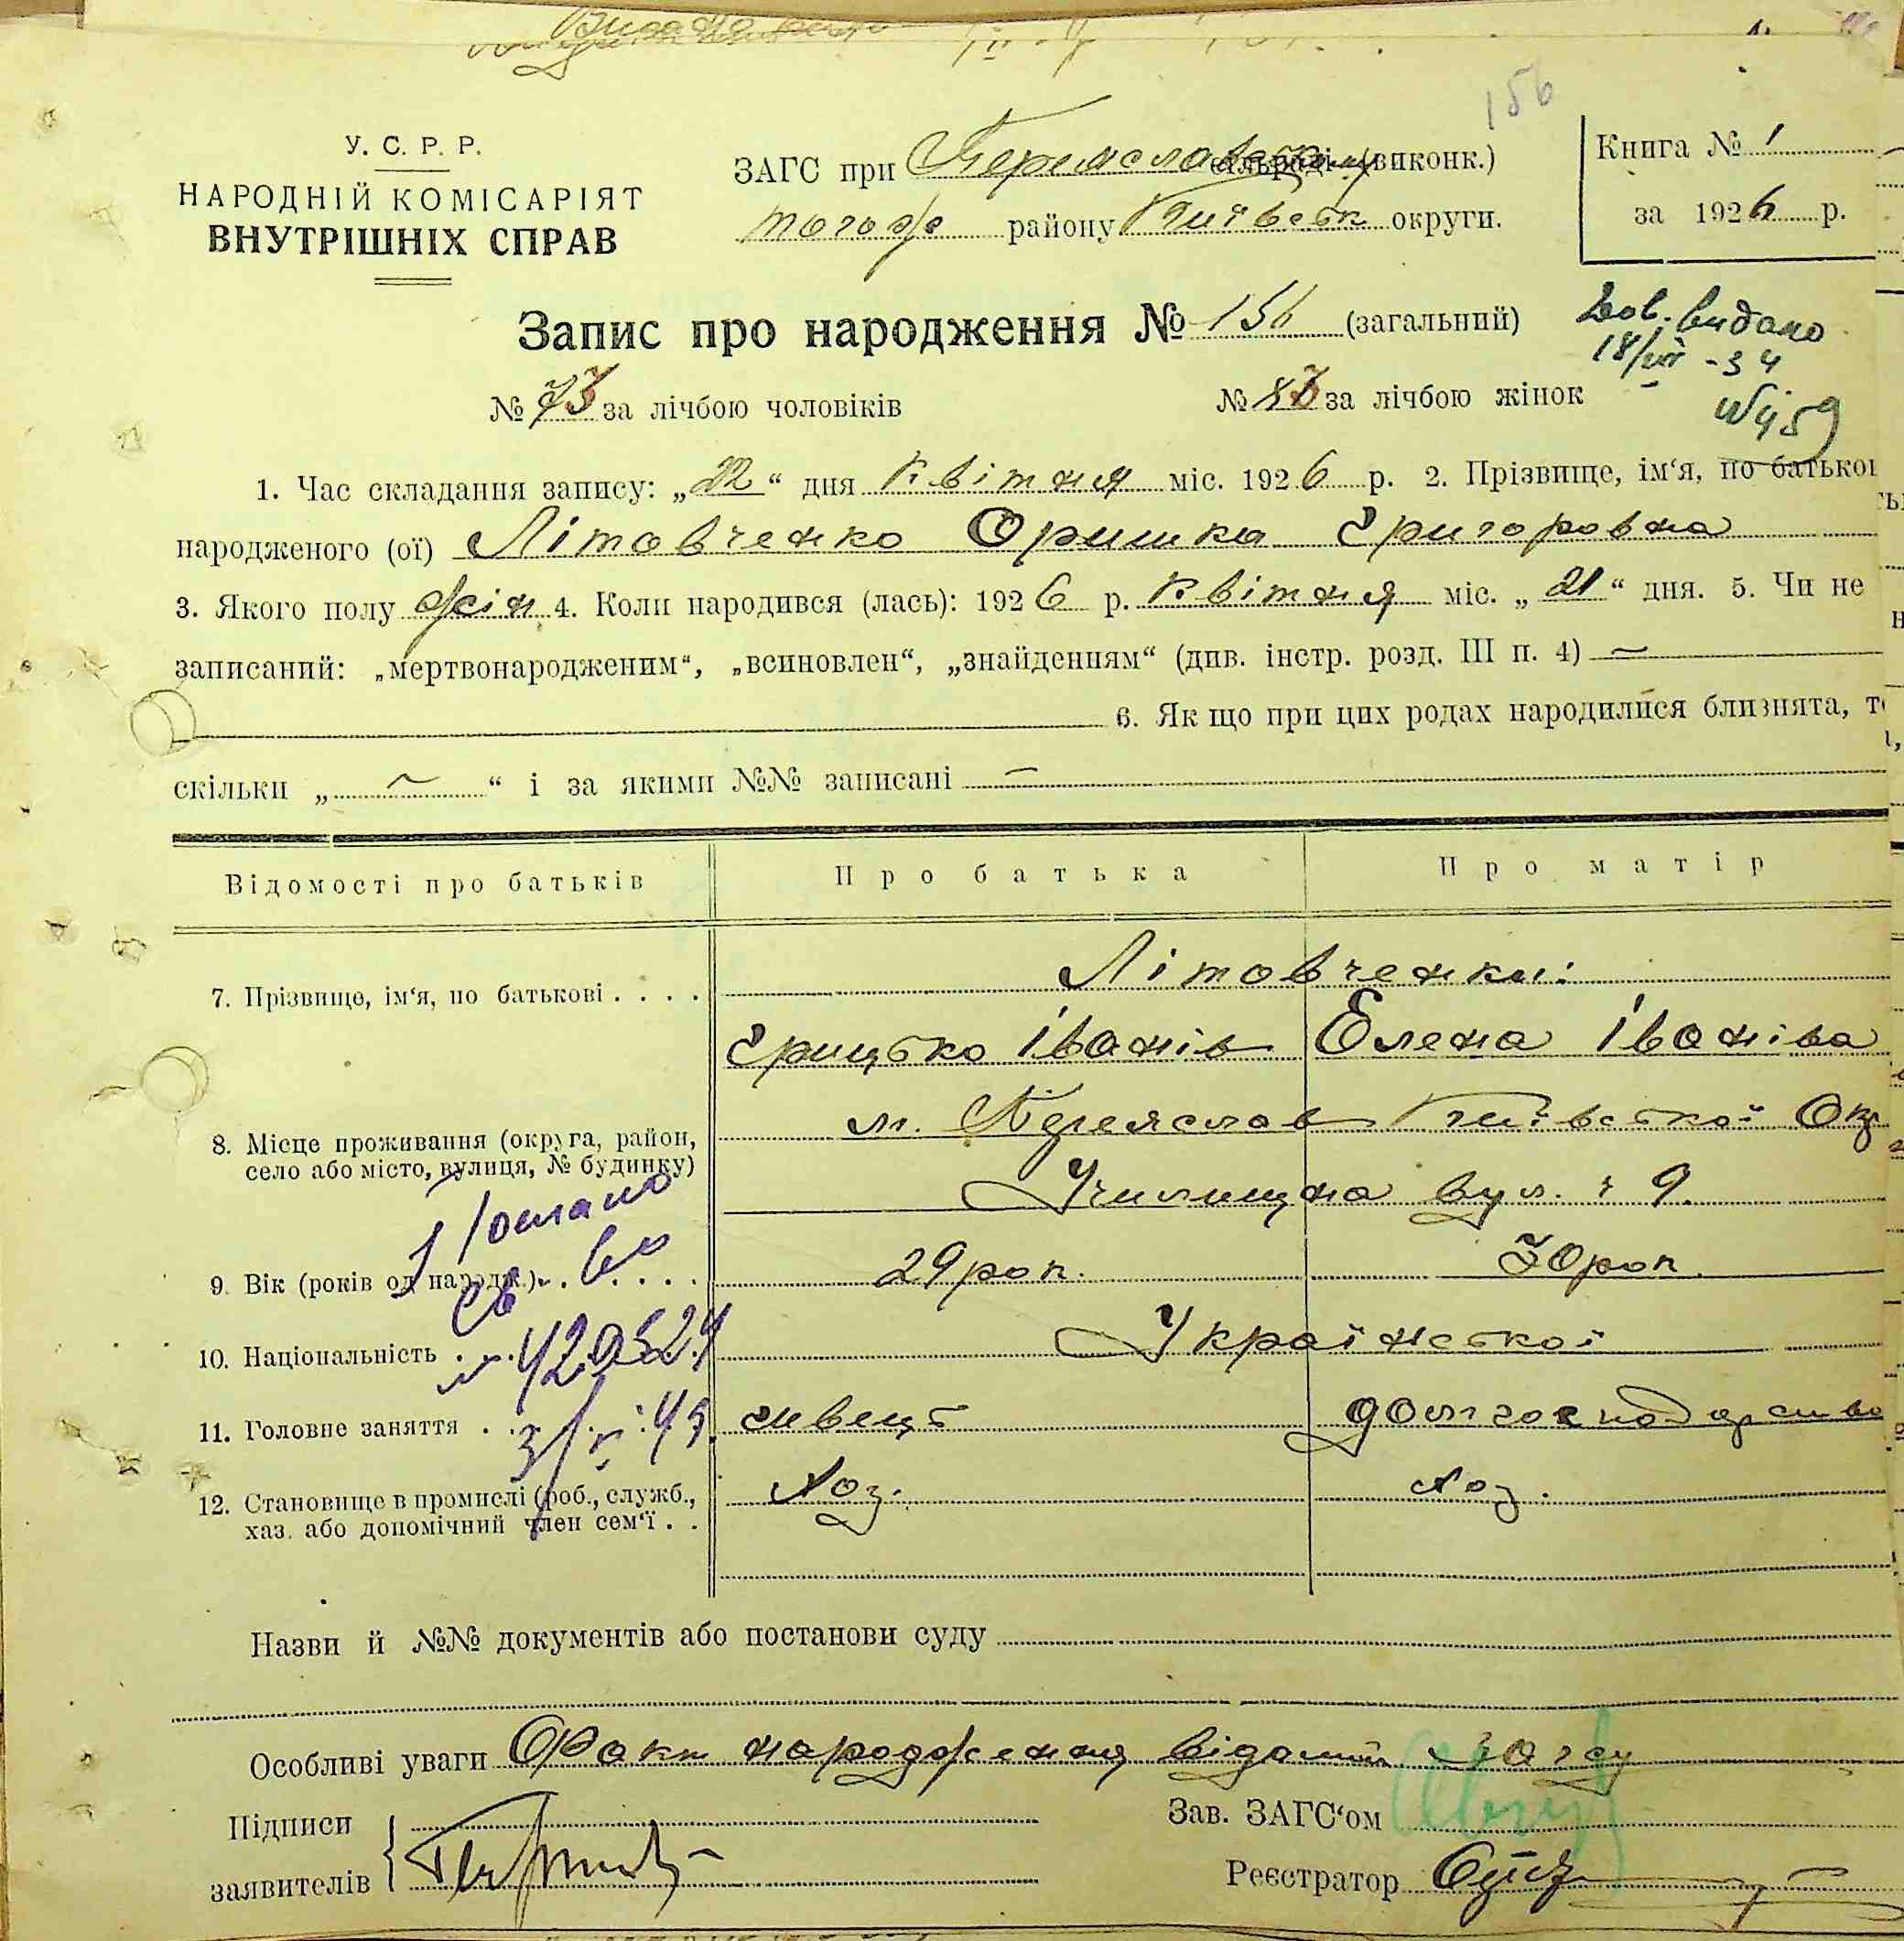 156
У. С. Р. Р.
НАРОДНІЙ КОМІСАРІЯТ
ВНУТРІШНІХ СПРАВ
ЗАГС при Переяславськ сільраді (виконк.)
того ж району Київськ округи.
Книга № 1
за 1926 р.
Запис про народження № 156 (загальний)
Дов. видано
18/VII -34
№ 459
№ 73 за лічбою чоловіків
№ 83 за лічбою жінок
1. Час складання запису: „22“ дня Квітня міс. 1926 р. 2. Прізвище, ім‘я, по батькові
народженого (ої) Літовченко Оришка Григоровна
3. Якого полу жін 4. Коли народився (лась): 1926 р. Квітня міс. „21“ дня. 5. Чи не
записаний: „мертвонародженим“, „всиновлен“, „знайденням“ (див. інстр. розд. III п. 4) —
6. Як що при цих родах народилися близнята, т
скільки „ — “ і за якими №№ записані —
Відомості про батьків
Про батька
Про матір
7. Прізвище, ім‘я, по батькові . . . .
Літовченки:
Грицько Іванів
Елена Іваніва
8. Місце проживання (округа, район,
село або місто, вулиця, № будинку)
м. Переяслав Київської Окр
Училищна вул. ч 9.
9. Вік (років од народж.) . . . . .
29 рок.
30 рок.
10. Національність . . .
Української
11. Головне заняття . . .
швець
дом господарство
12. Становище в промислі (роб., служб.,
хаз. або допомічний член сем‘ї . .
Хоз.
Хоз.
420524
Назви й №№ документів або постанови суду
Особливі уваги Факт народження відомий Загсу
Підписи
заявителів
Зав. ЗАГС‘ом
Реєстратор